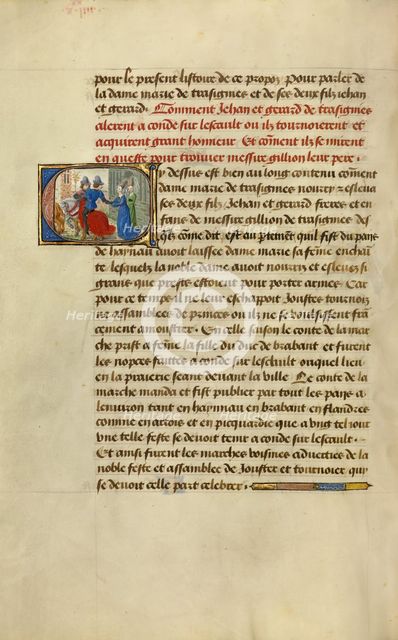 pour le present listoire de ce propoz Pour parler de
la dame marie de trasignies et de ses deux filz iehan
et gerard. Comment Jehan et gerard de trasignies
alerent a conde sur lescault ou ilz tournoierent et
acquirent grant honneur Et comment ilz se mirent
en queste pour trouuer messire gillion leur pere.
Cy dessus est bien au long contenu coment
dame marie de trasignies nourry et esleua
ses deux filz Jehan et gerard freres et en
fans de messire gillion de trasignies des
quelz come dit est au partement quil fist du pays
de haynau auoit laissee dame marie sa feme enchain
te lesquelz la noble dame auoit nourris et esleuez si
grans que prestz estoient pour porter armes Car
pour ce temps il ne leur eschappoit Joustes tournois
ne assamblees de princes ou ilz ne se voulsissent fran
cement amoustrer. En celle saison le conte de la mar
che prist a feme la fille du duc de brabant et furent
les nopces faittes a conde sur lescault ou quel lieu
en la praierie seant deuant la ville Le conte de la
marche manda et fist publier par tout les pays a
lenuiron tant en haynnau en brabant en flandres
comme en artois et en picquardie que a vng tel iour
vne telle feste se deuoit tenir a conde sur lescault.
Et ainsi furent les marches voisines aduerties de la
noble feste et assamblee de Jouster et tournoier qui
se deuoit celle part celebrer.
Heritage Images